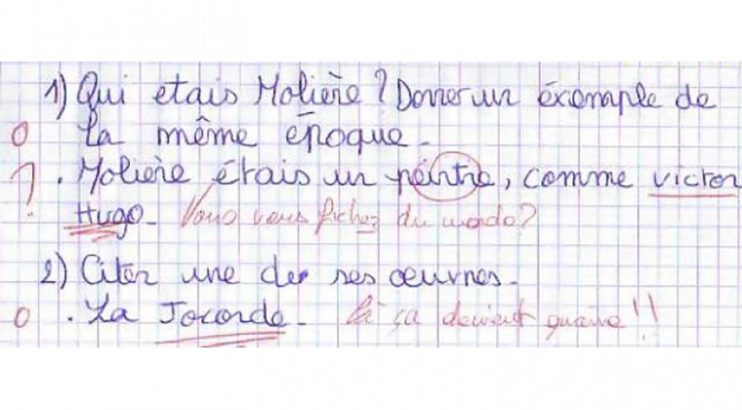 1) Qui etais Molière ? Donner un éxemple de
0 la même époque.
? . Molière étais un peintre, comme victor
Hugo. Vous vous fichez du monde ?
2) Citer une de ses œuvres.
0 . La Joconde. là ça devient grave !!